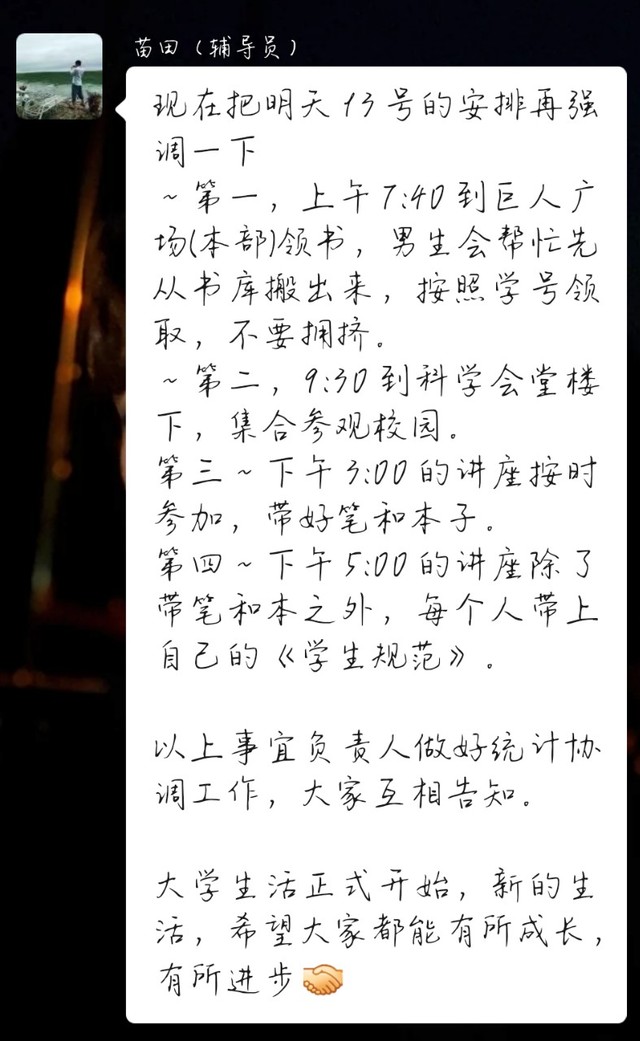 苗田（辅导员）
现在把明天13号的安排再强
调一下
~第一，上午7:40到巨人广
场(本部)领书，男生会帮忙先
从书库搬出来，按照学号领
取，不要拥挤。
~第二，9:30到科学会堂楼
下，集合参观校园。
第三~下午3:00的讲座按时
参加，带好笔和本子。
第四~下午5:00的讲座除了
带笔和本之外，每个人带上
自己的《学生规范》.
以上事宜负责人做好统计协
调工作，大家互相告知。
大学生活正式开始，新的生
活，希望大家都能有所成长，
有所进步